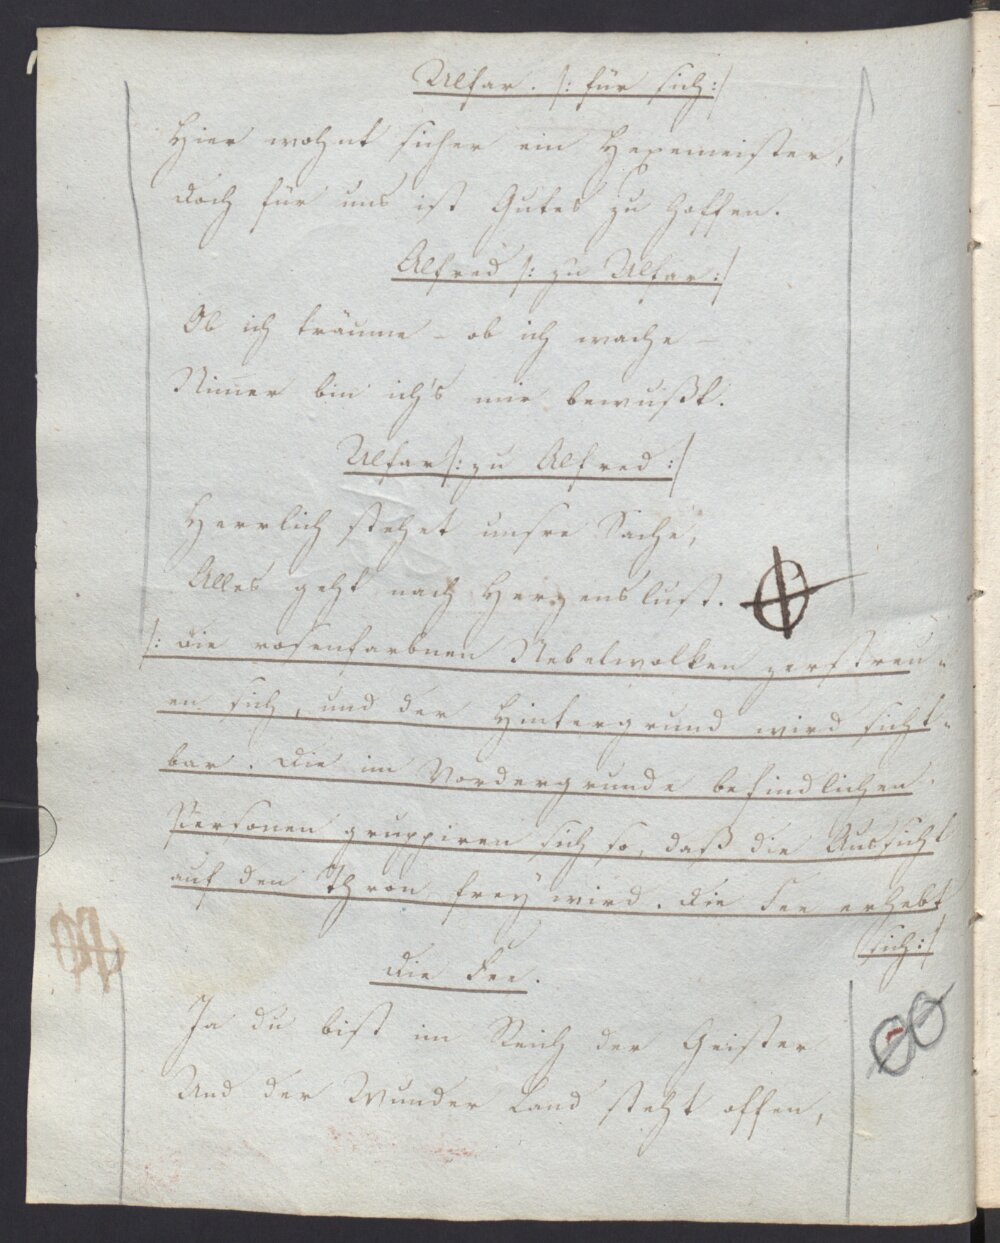 Ulfar. /: für sich :/
Hier wohnt sicher ein Hexenmeister,
doch für uns ist Gutes zu hoffen.
Alfred /: zu Ulfar :/
Ob ich träume – ob ich wache –
Nimmer bin ich's mir bewußt.
Ulfar /: zu Alfred :/
Herrlich stehet unsre Sache,
Alles geht nach Herzenslust.
/: die rosenfarbnen Nebelwolken zerstreu=
en sich, und der Hintergrund wird sicht=
bar. Die im Vordergrunde befindlichen
Personen gruppiren sich so, daß die Aussicht
auf den Thron frey wird. Die Fee erhebt
sich :/
Die Fee.
Ja du bist im Reich der Geister
Und der Wunder Land steht offen,